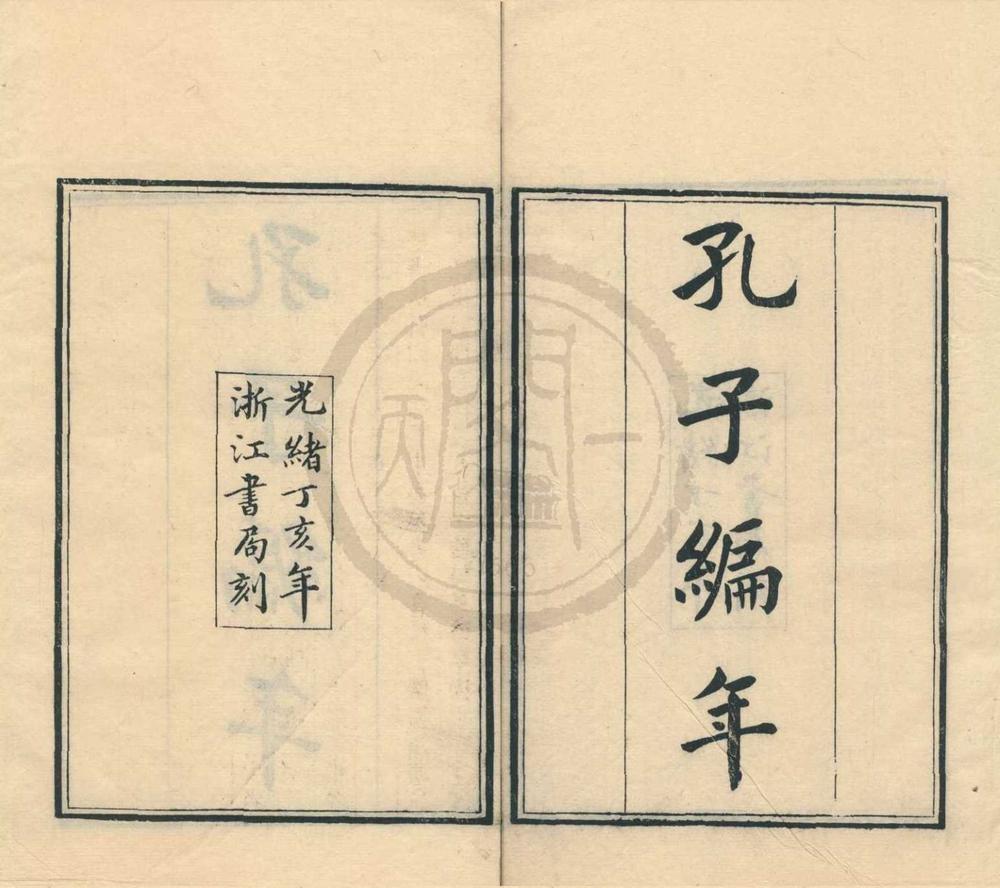 孔子編年
光緒丁亥年
浙江書局刻